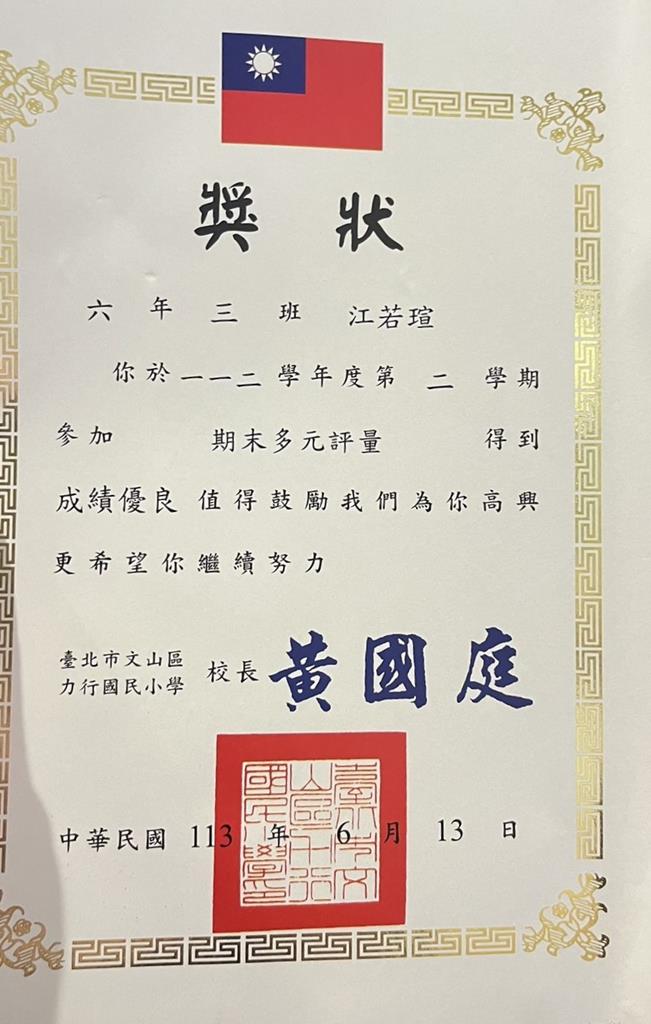 獎狀
六年三班 江若瑄
你於一一二學年度第二學期
參加 期末多元評量 得到
成績優良 值得鼓勵我們為你高興
更希望你繼續努力
臺北市文山區
力行國民小學
校長 黃國庭
中華民國 113 年 6 月 13 日
臺北市文
山區力行
國民小學印